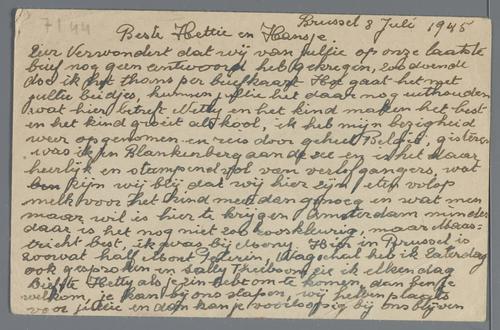 71 44
Brussel 8 Juli 1945
Beste Hettie en Hansje.
Zeer verwondert dat wij van jullie op onze laatste
brief nog geen antwoord heb gekregen, zoodoende
doe ik het thans per briefkaart Hoe gaat het met
jullie beidjes, kunnen jullie het daar nog uithouden
wat hier betreft Netty en het kind maken het best
en het kind groeit als kool, ik heb mijn bezigheid
weer opgenomen en reis door geheel België, gisteren
was ik in Blankenberg aan de zee en is het daar
heerlijk en stampend vol van verlofgangers, wat
ben zijn wij blij dat wij hier zijn eten volop
melk voor het kind meer dan genoeg en wat men
maar wil is hier te krijgen Amsterdam minder
daar is het nog niet zoo rooskleurig, maar Maas-
tricht best, ik was bij Moony. Hier in Brussel is
zoowat half Mont Peterin, Wagschal heb ik Zaterdag
ook gesproken en Sally zie ik elken dag
Hetty als je zin hebt om te komen, dan ben je
welkom, je kan bij ons slapen, wij hebben plaats
voor jullie en dan kan je voorloopig bij ons blijven